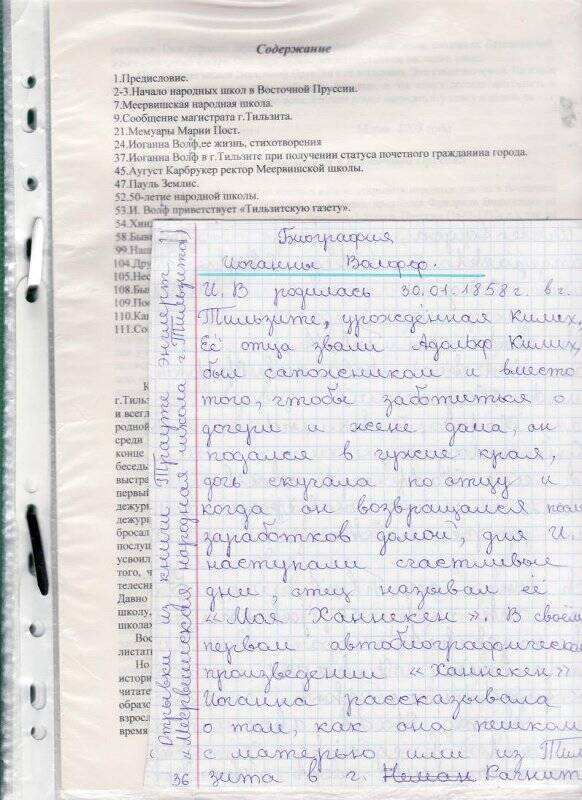 Содержание
1.Предисловие.
2-3.Начало народных школ в Восточной Пруссии.
7.Меервишская народная школа.
9.Сообщение магистрата г.Тильзита.
21.Мемуары Марии Пост.
24.Иоганна Волф,ее жизнь, стихотворения
37.Иоганна Волф в г.Тильзите при получении статуса почетного гражданина города.
45.Аугуст Карбрукер ректор Меервишской школы.
47.Пауль Землис.
52.50-летие народной школы.
53.И. Волф приветствует «Тильзитскую газету».
54.Хинд
58.Бывш
99.Наш
104.Дру
105.Нес
108.Бы
109.По
110.Ка
111.Со
К
г.Тиль
и всегд
родной
среди
конце
беседь
выстра
первый
дежур
дежур
бросал
послуш
усвоил
того, ч
телесн
Давно
школу,
школах
Вос
листат
Но
истори
читате
образо
взросл
время
Отрывки из книги Трауте Энглерт
«Меервишская народная школа г.Тильзита»)
Биография
Иоганны Волфф.
И.В родилась 30.01.1858г. в г.
Тильзите, урождённая Килих.
Её отца звали Адольф Килих,
был сапожником и вместо
того, чтобы заботиться о
дочери и жене дома, он
подался в чужие края,
дочь скучала по отцу и
когда он возвращался после
заработков домой, для И.
наступали счастливые
дни, отец называл её
«Моя Ханнекен». В своём
первом автобиографическом
произведении «Ханнекен»
Иоганна рассказывала
о том, как она пешком
с матерью шли из Тил
зита в г. Неман Рагнит
36